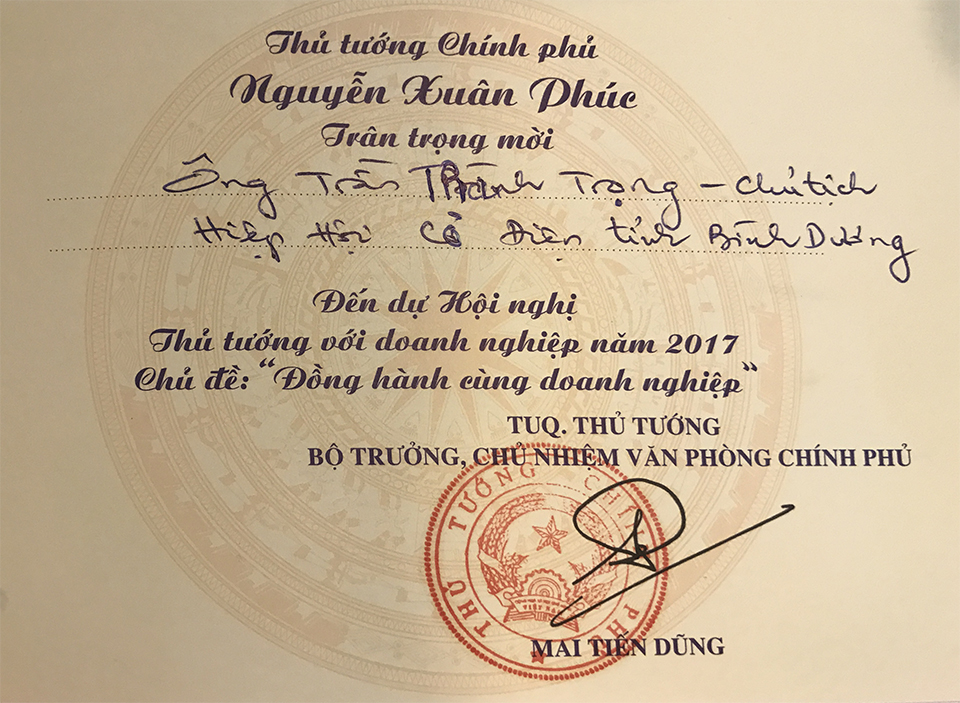 Thủ tướng Chính phủ
Nguyễn Xuân Phúc
Trân trọng mời
Ông Trần Thành Trọng - Chủ tịch
Hiệp Hội Cơ Điện tỉnh Bình Dương
Đến dự Hội nghị
Thủ tướng với doanh nghiệp năm 2017
Chủ đề: "Đồng hành cùng doanh nghiệp"
TUQ. THỦ TƯỚNG
BỘ TRƯỞNG, CHỦ NHIỆM VĂN PHÒNG CHÍNH PHỦ
THỦ TƯỚNG CHÍNH PHỦ
VIỆT NAM
MAI TIẾN DŨNG